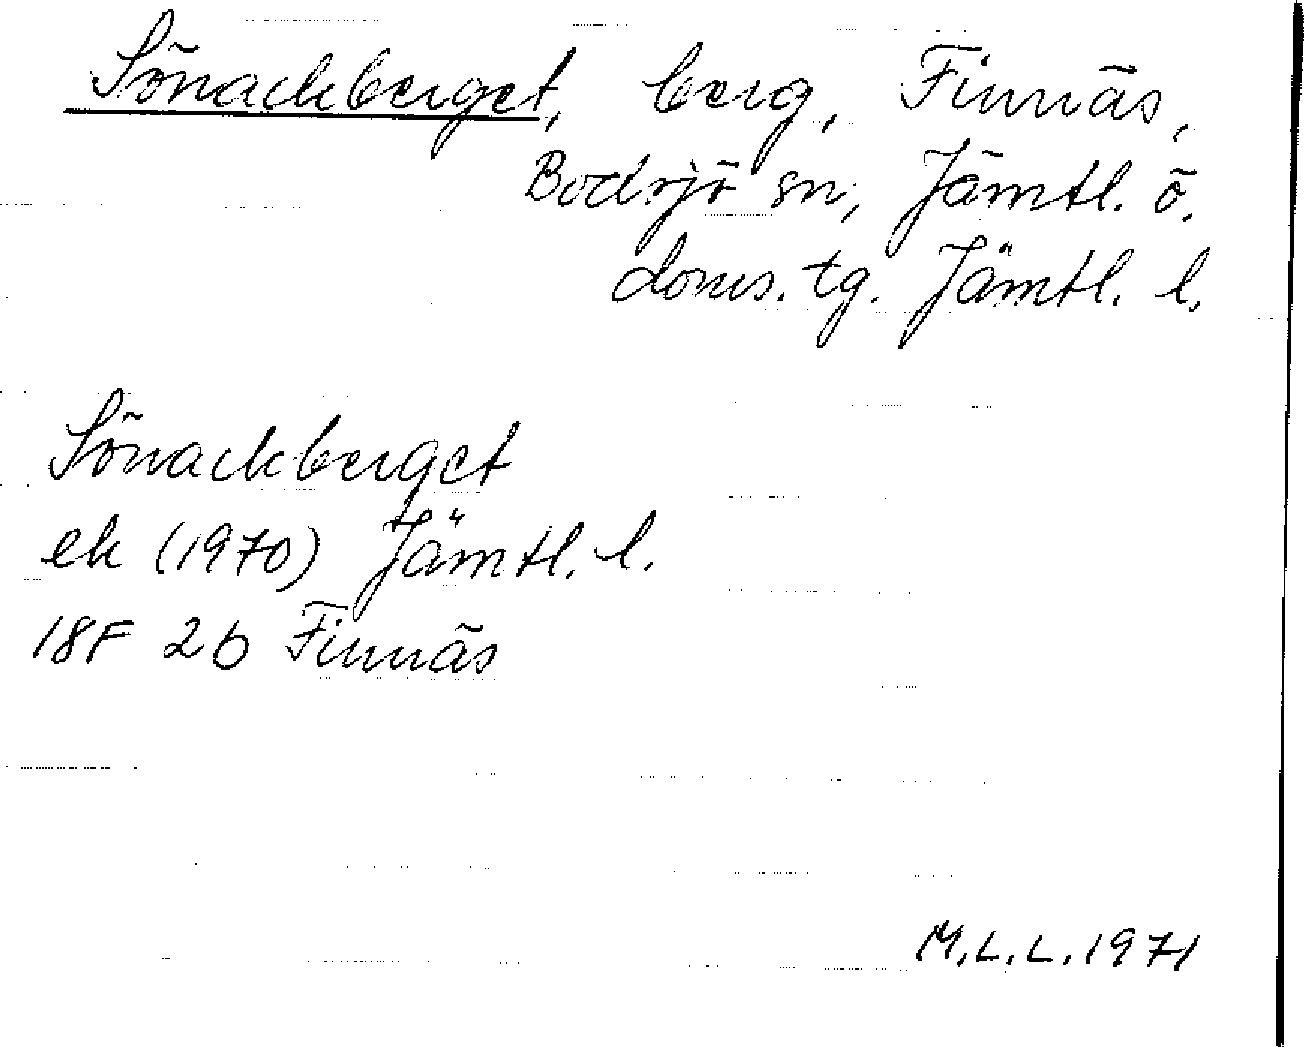 Sönackberget, berg, Finnäs,
Bodsjö sn, Jämtl. ö.
doms. tg. Jämtl. l.
Sönackberget
ek (1970) Jämtl. l.
18F 2b Finnäs
M.L.L. 1971